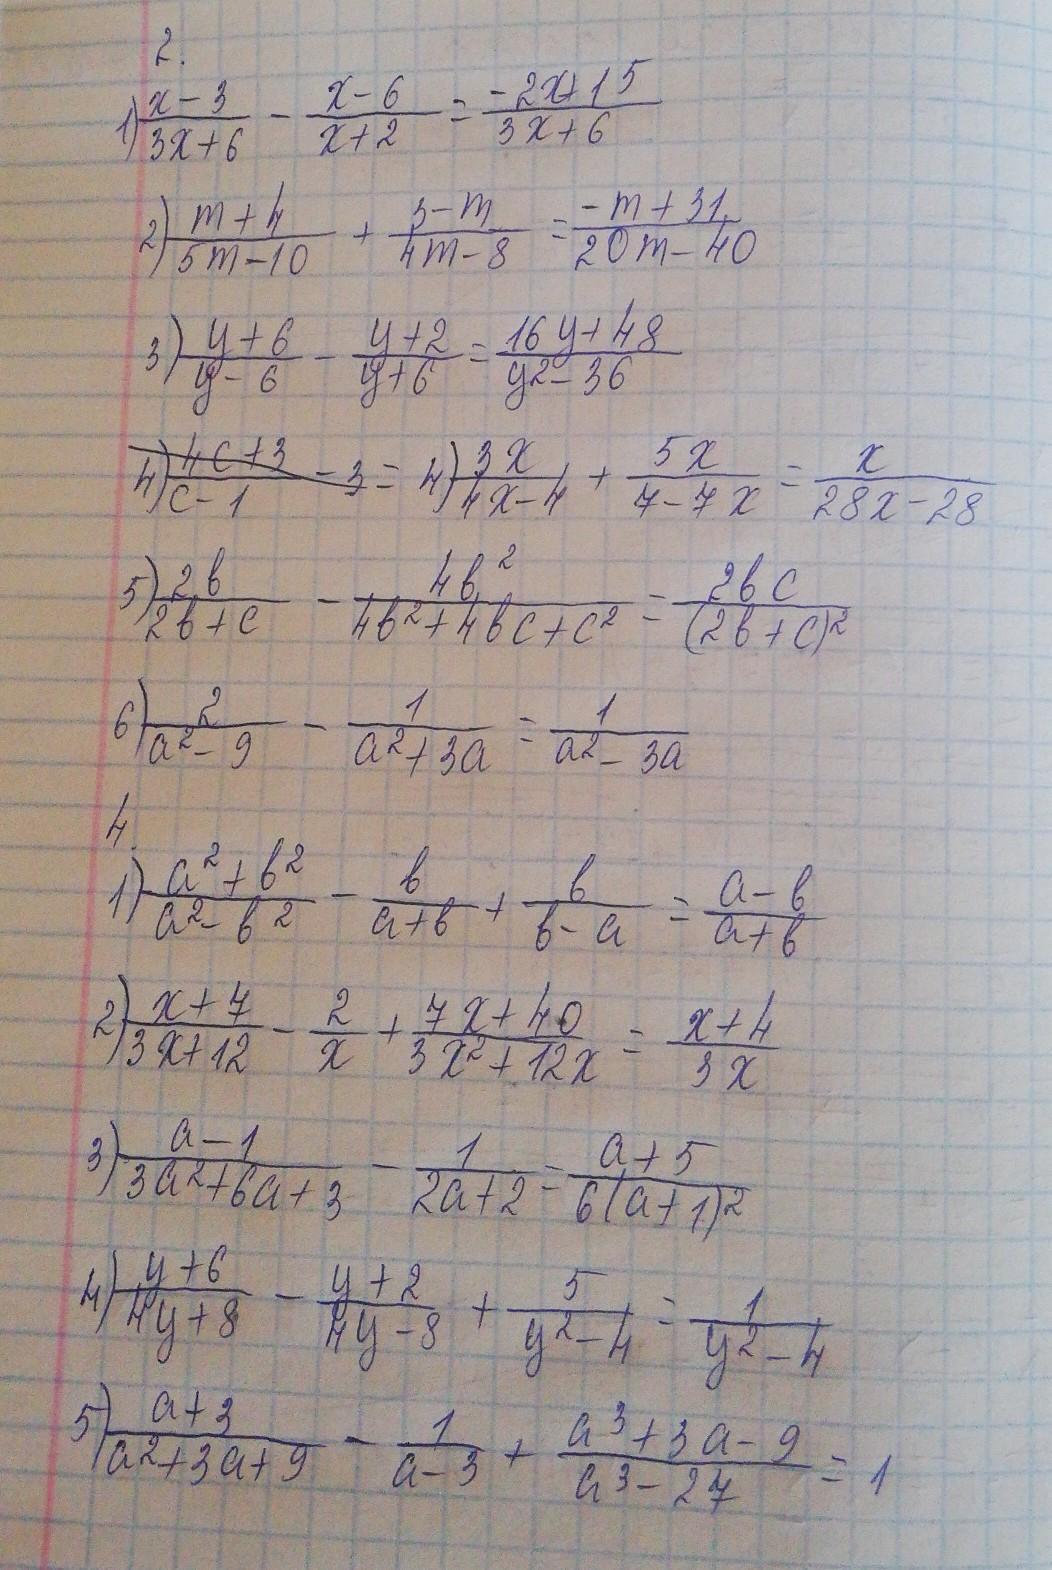 2.
1) (x-3)/(3x+6) - (x-6)/(x+2) = (-2x+15)/(3x+6)
2) (m+4)/(5m-10) + (3-m)/(4m-8) = (-m+31)/(20m-40)
3) (y+6)/(y-6) - (y+2)/(y+6) = (16y+48)/(y²-36)
4) (4c+3)/(c-1) - 3 = 4) 3x/(4x-4) + 5x/(7-7x) = x/(28x-28)
5) 2b/(2b+c) - 4b²/(4b²+4bc+c²) = 2bc/(2b+c)²
6) 2/(a²-9) - 1/(a²+3a) = 1/(a²-3a)
4.
1) (a²+b²)/(a²-b²) - b/(a+b) + b/(b-a) = (a-b)/(a+b)
2) (x+7)/(3x+12) - 2/x + (7x+40)/(3x²+12x) = (x+4)/(3x)
3) (a-1)/(3a²+6a+3) - 1/(2a+2) = (a+5)/(6(a+1)²)
4) (y+6)/(4y+8) - (y+2)/(4y-8) + 5/(y²-4) = 1/(y²-4)
5) (a+3)/(a²+3a+9) - 1/(a-3) + (a³+3a-9)/(a³-27) = 1